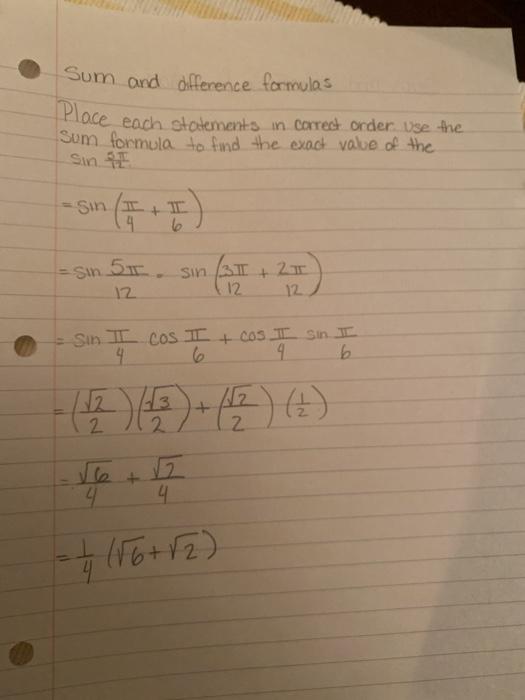 Sum and difference formulas
Place each statements in correct order. Use the
sum formula to find the exact value of the
sin 5π/12
= sin (π/4 + π/6)
= sin 5π/12 = sin (3π/12 + 2π/12)
= sin π/4 cos π/6 + cos π/4 sin π/6
= (√2/2)(√3/2) + (√2/2)(1/2)
= √6/4 + √2/4
= 1/4 (√6 + √2)